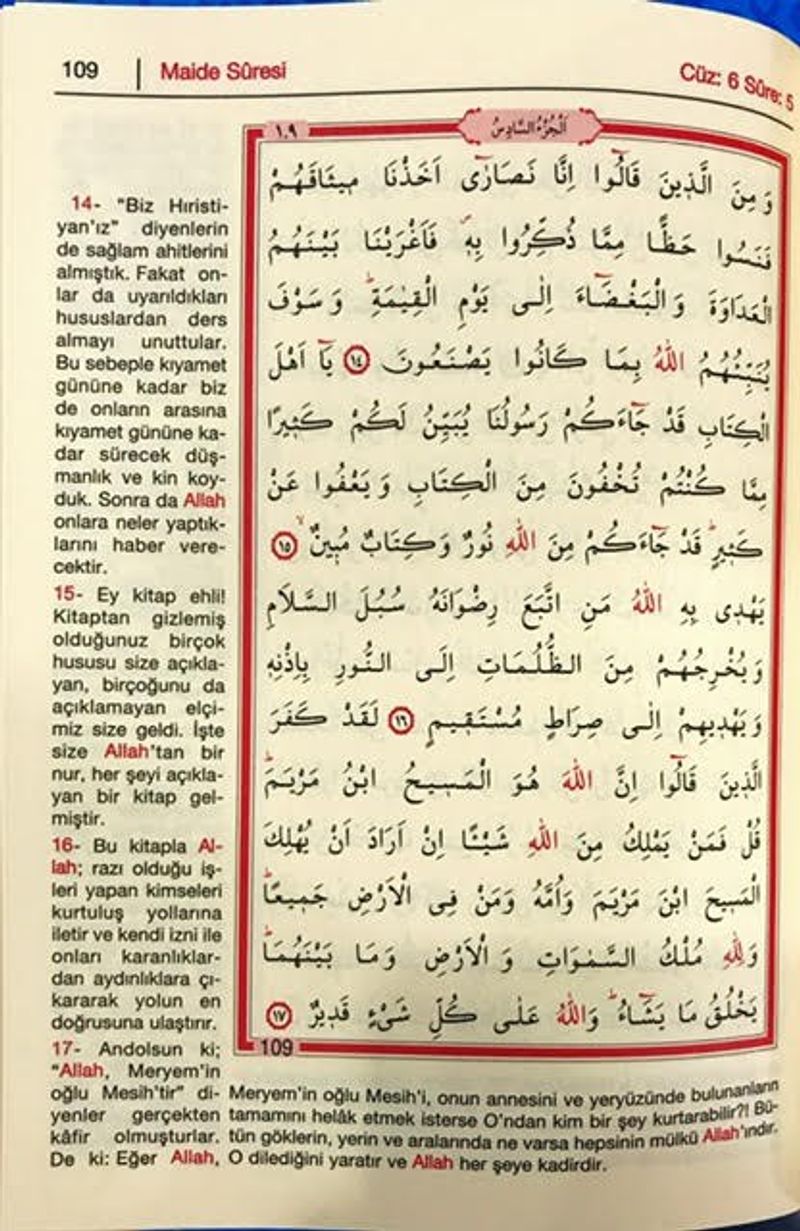 109 | Maide Sûresi
Cüz: 6 Sûre: 5
١٠٩
اَلْجُزْءُ السَّادِسُ
14- "Biz Hıristi-
yan'ız" diyenlerin
de sağlam ahitlerini
almıştık. Fakat on-
lar da uyarıldıkları
hususlardan ders
almayı unuttular.
Bu sebeple kıyamet
gününe kadar biz
de onların arasına
kıyamet gününe ka-
dar sürecek düş-
manlık ve kin koy-
duk. Sonra da Allah
onlara neler yaptık-
larını haber vere-
cektir.
15- Ey kitap ehli!
Kitaptan gizlemiş
olduğunuz birçok
hususu size açıkla-
yan, birçoğunu da
açıklamayan elçi-
miz size geldi. İşte
size Allah'tan bir
nur, her şeyi açıkla-
yan bir kitap gel-
miştir.
16- Bu kitapla Al-
lah; razı olduğu iş-
leri yapan kimseleri
kurtuluş yollarına
iletir ve kendi izni ile
onları karanlıklar-
dan aydınlıklara çı-
kararak yolun en
doğrusuna ulaştırır.
17- Andolsun ki;
"Allah, Meryem'in
oğlu Mesih'tir" di-
yenler gerçekten
kâfir olmuşturlar.
De ki: Eğer Allah,
وَمِنَ الَّذِينَ قَالُٓوا اِنَّا نَصَارٰٓى اَخَذْنَا مِيثَاقَهُمْ
فَنَسُوا حَظًّا مِمَّا ذُكِّرُوا بِهِۖ فَاَغْرَيْنَا بَيْنَهُمُ
الْعَدَاوَةَ وَالْبَغْضَٓاءَ اِلٰى يَوْمِ الْقِيٰمَةِۜ وَسَوْفَ
يُنَبِّئُهُمُ اللّٰهُ بِمَا كَانُوا يَصْنَعُونَ ﴿١٤﴾ يَٓا اَهْلَ
الْكِتَابِ قَدْ جَٓاءَكُمْ رَسُولُنَا يُبَيِّنُ لَكُمْ كَثِيرًا
مِمَّا كُنْتُمْ تُخْفُونَ مِنَ الْكِتَابِ وَيَعْفُوا عَنْ
كَثِيرٍۜ قَدْ جَٓاءَكُمْ مِنَ اللّٰهِ نُورٌ وَكِتَابٌ مُبِينٌۙ ﴿١٥﴾
يَهْدِى بِهِ اللّٰهُ مَنِ اتَّبَعَ رِضْوَانَهُ سُبُلَ السَّلَامِ
وَيُخْرِجُهُمْ مِنَ الظُّلُمَاتِ اِلَى النُّورِ بِاِذْنِهِ
وَيَهْدِيهِمْ اِلٰى صِرَاطٍ مُسْتَقِيمٍ ﴿١٦﴾ لَقَدْ كَفَرَ
الَّذِينَ قَالُٓوا اِنَّ اللّٰهَ هُوَ الْمَسِيحُ ابْنُ مَرْيَمَۜ
قُلْ فَمَنْ يَمْلِكُ مِنَ اللّٰهِ شَيْـًٔا اِنْ اَرَادَ اَنْ يُهْلِكَ
الْمَسِيحَ ابْنَ مَرْيَمَ وَاُمَّهُ وَمَنْ فِى الْاَرْضِ جَمِيعًاۜ
وَلِلّٰهِ مُلْكُ السَّمٰوَاتِ وَالْاَرْضِ وَمَا بَيْنَهُمَاۜ
يَخْلُقُ مَا يَشَٓاءُۜ وَاللّٰهُ عَلٰى كُلِّ شَىْءٍ قَدِيرٌ ﴿١٧﴾
109
Meryem'in oğlu Mesih'i, onun annesini ve yeryüzünde bulunanların
tamamını helâk etmek isterse O'ndan kim bir şey kurtarabilir?! Bü-
tün göklerin, yerin ve aralarında ne varsa hepsinin mülkü Allah'ındır.
O dilediğini yaratır ve Allah her şeye kadirdir.